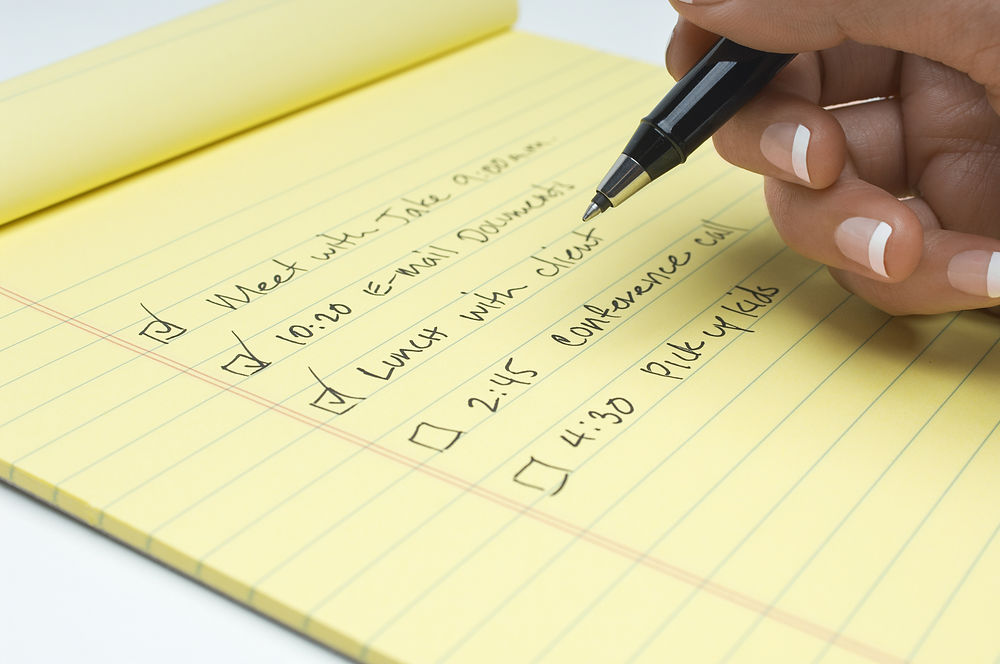 Meet with Jake 9:00 a.m.
10:20 E-mail Documents
Lunch with client
2:45 conference call
4:30 pick up kids